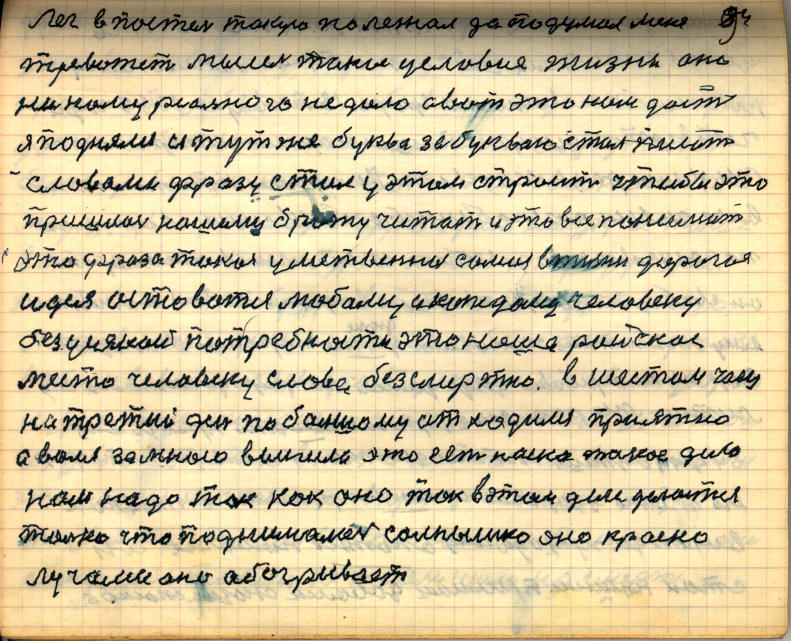 Лег в постел такую полежал да подумал мене 94
тревотет мысел такие условие жизни она
не кому реалного не дало а вот это нам даст
я поднялся и тут же буква за буквою стал писать
словами фразу стал у этом строит чтобы это
пришлос нашему брату читат и это все понимат
эта фраза такая умственно самая в жизни дорогая
идея остоватся любому и каждому человеку
без усякой потребности это наша райское
место человеку слова безсмертно. в шестом часу
на третий ден по банному отходили приятно
а воля за много это ест наше такое дело
нам надо так как оно так в этом деле делается
толко что поднималос солнышко оно красно
лучами оно абогривает